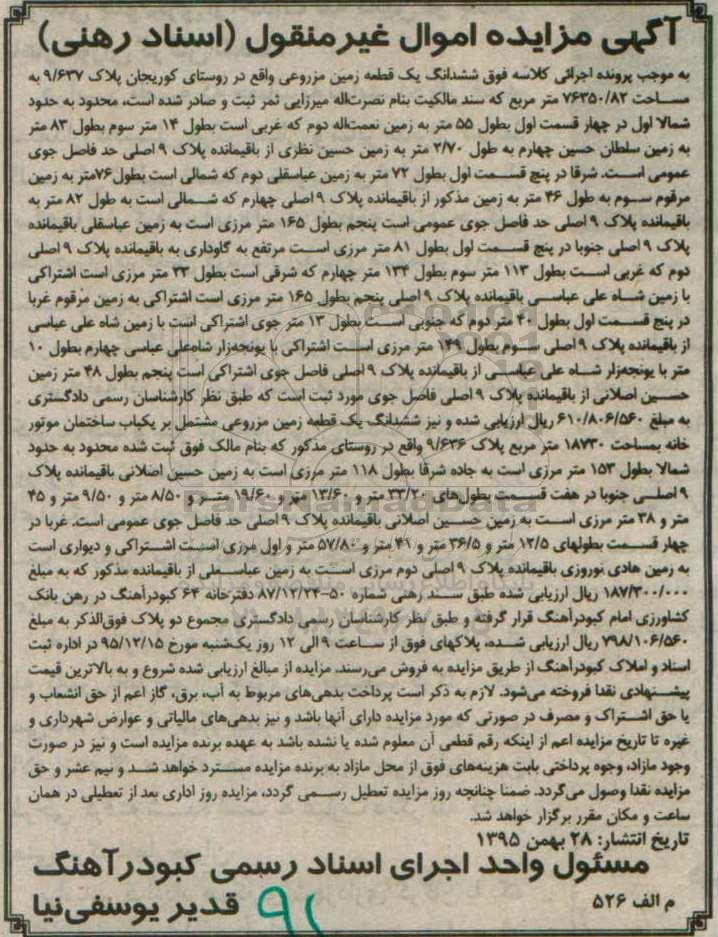 آگهی مزایده اموال غیرمنقول (اسناد رهنی)
به موجب پرونده اجرائی کلاسه فوق ششدانگ یک قطعه زمین مزروعی واقع در روستای کوریجان پلاک ۹/۶۳۷ به
مساحت ۷۶۳۵۰/۸۲ متر مربع که سند مالکیت بنام نصرت‌اله میرزایی ثمر ثبت و صادر شده است، محدود به حدود
شمالا اول در چهار قسمت اول بطول ۵۵ متر به زمین نعمت‌اله دوم که غربی است بطول ۱۴ متر سوم بطول ۸۳ متر
به زمین سلطان حسین چهارم به طول ۲/۷۰ متر به زمین حسین نظری از باقیمانده پلاک ۹ اصلی حد فاصل جوی
عمومی است. شرقا در پنج قسمت اول بطول ۷۲ متر به زمین عباسقلی دوم که شمالی است بطول ۷۶متر به زمین
مرقوم سوم به طول ۴۶ متر به زمین مذکور از باقیمانده پلاک ۹ اصلی چهارم که شمالی است به طول ۸۲ متر به
باقیمانده پلاک ۹ اصلی حد فاصل جوی عمومی است پنجم بطول ۱۶۵ متر مرزی است به زمین عباسقلی باقیمانده
پلاک ۹ اصلی جنوبا در پنج قسمت اول بطول ۸۱ متر مرزی است مرتفع به گاوداری به باقیمانده پلاک ۹ اصلی
دوم که غربی است بطول ۱۱۳ متر سوم بطول ۱۳۴ متر چهارم که شرقی است بطول ۳۳ متر مرزی است اشتراکی
با زمین شاه علی عباسی باقیمانده پلاک ۹ اصلی پنجم بطول ۱۶۵ متر مرزی است اشتراکی به زمین مرقوم غربا
در پنج قسمت اول بطول ۴۰ متر دوم که جنوبی است بطول ۱۳ متر جوی اشتراکی است با زمین شاه علی عباسی
از باقیمانده پلاک ۹ اصلی سوم بطول ۱۴۹ متر مرزی است اشتراکی با یونجه‌زار شاه‌علی عباسی چهارم بطول ۱۰
متر با یونجه‌زار شاه علی عباسی از باقیمانده پلاک ۹ اصلی فاصل جوی اشتراکی است پنجم بطول ۴۸ متر زمین
حسین اصلانی از باقیمانده پلاک ۹ اصلی فاصل جوی مورد ثبت است که طبق نظر کارشناسان رسمی دادگستری
به مبلغ ۶۱۰/۸۰۶/۵۶۰ ریال ارزیابی شده و نیز ششدانگ یک قطعه زمین مزروعی مشتمل بر یکباب ساختمان موتور
خانه بمساحت ۱۸۷۳۰ متر مربع پلاک ۹/۶۳۶ واقع در روستای مذکور که بنام مالک فوق ثبت شده محدود به حدود
شمالا بطول ۱۵۳ متر مرزی است به جاده شرقا بطول ۱۱۸ متر مرزی است به زمین حسین اصلانی باقیمانده پلاک
۹ اصلی جنوبا در هفت قسمت بطول‌های ۳۳/۲۰ متر و ۱۳/۶۰ متر و ۱۹/۶۰ متر و ۸/۵۰ متر و ۹/۵۰ متر و ۴۵
متر و ۳۸ متر مرزی است به زمین حسین اصلانی باقیمانده پلاک ۹ اصلی حد فاصل جوی عمومی است. غربا در
چهار قسمت بطولهای ۱۲/۵ متر و ۳۶/۵ متر و ۴۱ متر و ۵۷/۸۰ متر و اول مرزی است اشتراکی و دیواری است
به زمین هادی نوروزی باقیمانده پلاک ۹ اصلی دوم مرزی است به زمین عباسعلی از باقیمانده مذکور که به مبلغ
۱۸۷/۳۰۰/۰۰۰ ریال ارزیابی شده طبق سند رهنی شماره ۵۰-۸۷/۱۲/۲۴ دفترخانه ۶۴ کبودرآهنگ در رهن بانک
کشاورزی امام کبودرآهنگ قرار گرفته و طبق نظر کارشناسان رسمی دادگستری مجموع دو پلاک فوق‌الذکر به مبلغ
۷۹۸/۱۰۶/۵۶۰ ریال ارزیابی شده، پلاکهای فوق از ساعت ۹ الی ۱۲ روز یک‌شنبه مورخ ۹۵/۱۲/۱۵ در اداره ثبت
اسناد و املاک کبودرآهنگ از طریق مزایده به فروش می‌رسند. مزایده از مبالغ ارزیابی شده شروع و به بالاترین قیمت
پیشنهادی نقدا فروخته می‌شود. لازم به ذکر است پرداخت بدهی‌های مربوط به آب، برق، گاز اعم از حق انشعاب و
یا حق اشتراک و مصرف در صورتی که مورد مزایده دارای آنها باشد و نیز بدهی‌های مالیاتی و عوارض شهرداری و
غیره تا تاریخ مزایده اعم از اینکه رقم قطعی آن معلوم شده یا نشده باشد به عهده برنده مزایده است و نیز در صورت
وجود مازاد، وجوه پرداختی بابت هزینه‌های فوق از محل مازاد به برنده مزایده مسترد خواهد شد و نیم عشر و حق
مزایده نقدا وصول می‌گردد. ضمنا چنانچه روز مزایده تعطیل رسمی گردد، مزایده روز اداری بعد از تعطیلی در همان
ساعت و مکان مقرر برگزار خواهد شد.
تاریخ انتشار: ۲۸ بهمن ۱۳۹۵
مسئول واحد اجرای اسناد رسمی کبودرآهنگ
م الف ۵۲۶ قدیر یوسفی‌نیا
۹۱